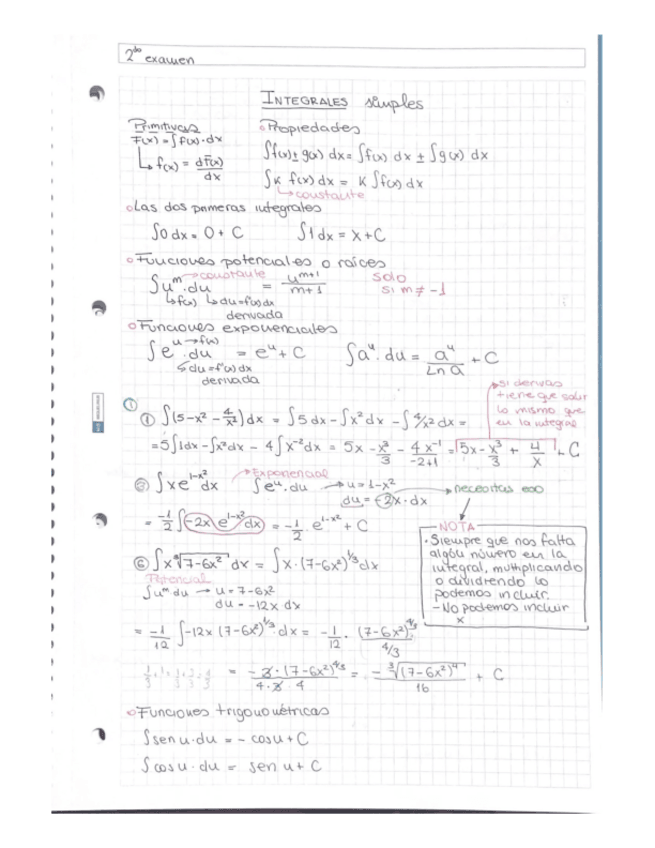 2do examen
INTEGRALES simples
Primitivas
F(x) = ∫f(x)·dx
↳ f(x) = dF(x)/dx
Propiedades
∫f(x) ± g(x) dx = ∫f(x) dx ± ∫g(x) dx
∫K f(x) dx = K ∫f(x) dx
↳ constante
Las dos primeras integrales
∫0 dx = 0 + C ∫1 dx = x + C
Funciones potenciales o raíces
∫u^m · du = u^(m+1)/(m+1) solo si m ≠ -1
→ constante
↳ f(x) ↳ du = f'(x) dx
derivada
Funciones exponenciales
∫e^u · du = e^u + C ∫a^u · du = a^u/Ln a + C
u → f(x)
↳ du = f'(x) dx
derivada
si derivas
tiene que salir
lo mismo que
en la integral
①
① ∫(5 - x² - 4/x²) dx = ∫5 dx - ∫x² dx - ∫4/x² dx =
= 5∫1dx - ∫x² dx - 4∫x⁻² dx = 5x - x³/3 - 4 x⁻¹/-2+1 = 5x - x³/3 + 4/x + C
③ ∫x e^(1-x²) dx → Exponencial ∫e^u · du → u = 1-x²
du = -2x · dx → necesitas eso
= -1/2 ∫-2x e^(1-x²) dx = -1/2 · e^(1-x²) + C
NOTA
· Siempre que nos falta
algún número en la
integral, multiplicando
o dividiendo lo
podemos incluir.
- No podemos incluir
x
⑥ ∫x ∛(7-6x²) dx = ∫x · (7-6x²)^(1/3) dx
Potencial
∫u^m du → u = 7-6x²
du = -12x dx
= -1/12 ∫-12x (7-6x²)^(1/3) · dx = -1/12 · (7-6x²)^(4/3) / 4/3
= -3 · (7-6x²)^(4/3) / 4·3 4 = - ∛(7-6x²)⁴ / 16 + C
Funciones trigonométricas
∫sen u · du = - cos u + C
∫cos u · du = sen u + C